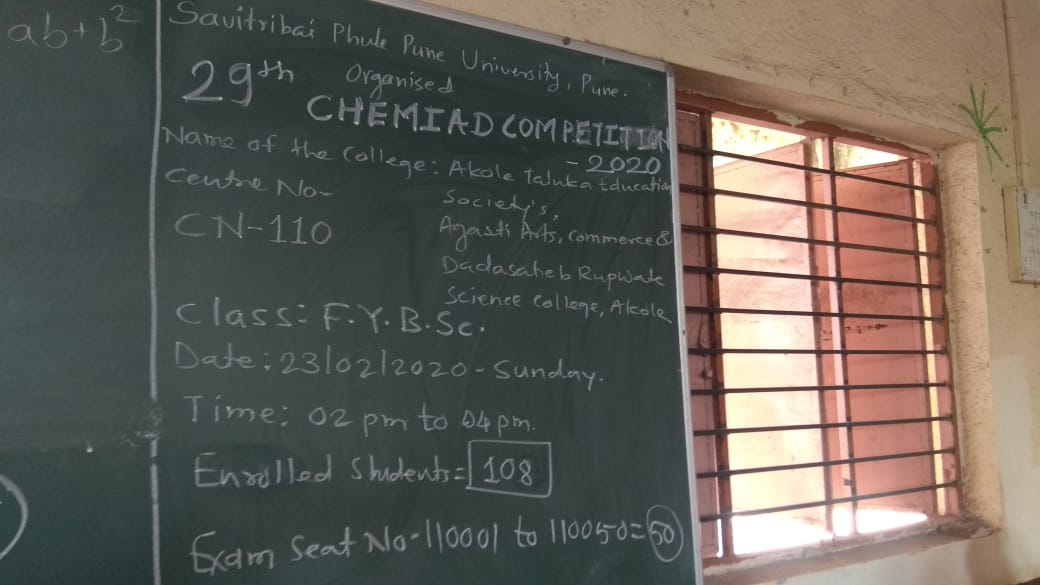 ab+b²
Savitribai Phule Pune University, Pune.
Organised
29th CHEMIAD COMPETITION
- 2020
Name of the College: Akole Taluka Education
Society's,
Centre No-
CN-110
Agasti Arts, Commerce &
Dadasaheb Rupwate
Science College, Akole
Class: F.Y.B.Sc.
Date: 23/02/2020 - Sunday.
Time: 02 pm to 04 pm.
Enrolled Students = 108
Exam Seat No - 110001 to 110050 = 50